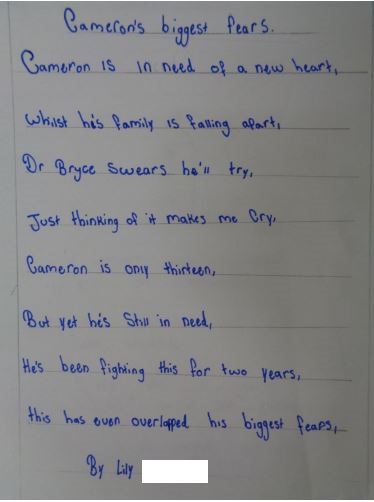 Cameron's biggest fears.
Cameron is in need of a new heart,
Whilst he's family is falling apart,
Dr Bryce swears he'll try,
Just thinking of it makes me cry,
Cameron is only thirteen,
But yet he's still in need,
He's been fighting this for two years,
this has even overlapped his biggest fears,
By Lily